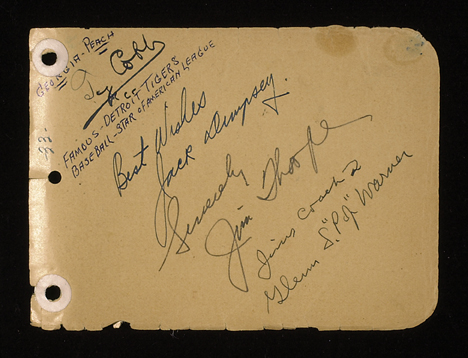 "GEORGIA-PEACH"
Ty Cobb
FAMOUS - DETROIT TIGERS
BASEBALL - STAR OF AMERICAN LEAGUE
Best Wishes
Jack Dempsey.
Sincerely
Jim Thorpe
Jim's Coach
Glenn S. "Pop" Warner